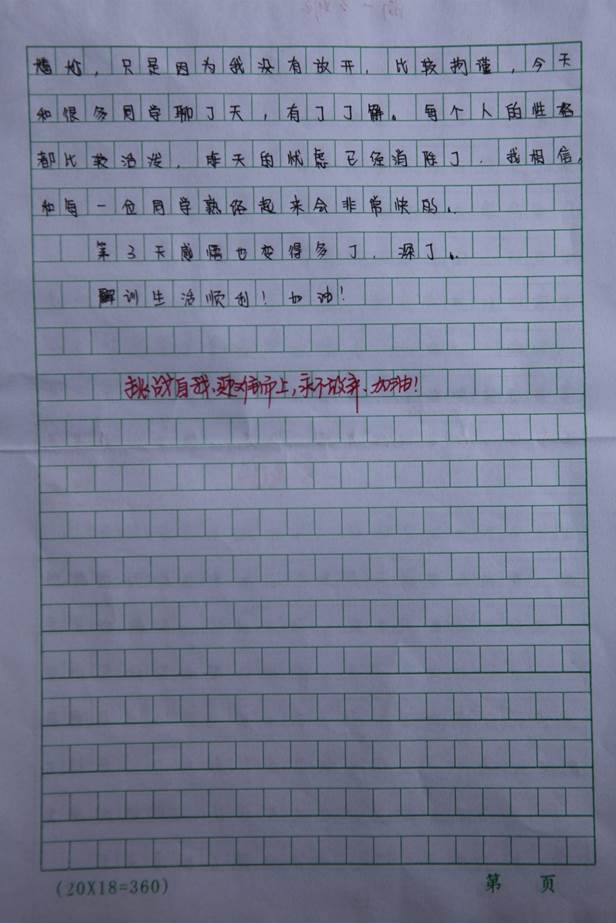 尴尬，只是因为我没有放开，比较拘谨，今天
和很多同学聊了天，有了了解。每个人的性格
都比较活泼，昨天的忧虑已经消除了。我相信，
和每一位同学熟络起来会非常快的。
第3天感悟也变得多了，深了。
军训生活顺利！加油！
挑战自我、迎难而上，永不放弃、加油！
(20X18=360)
第 页